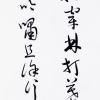 穿林打葉
吟嘯且徐行